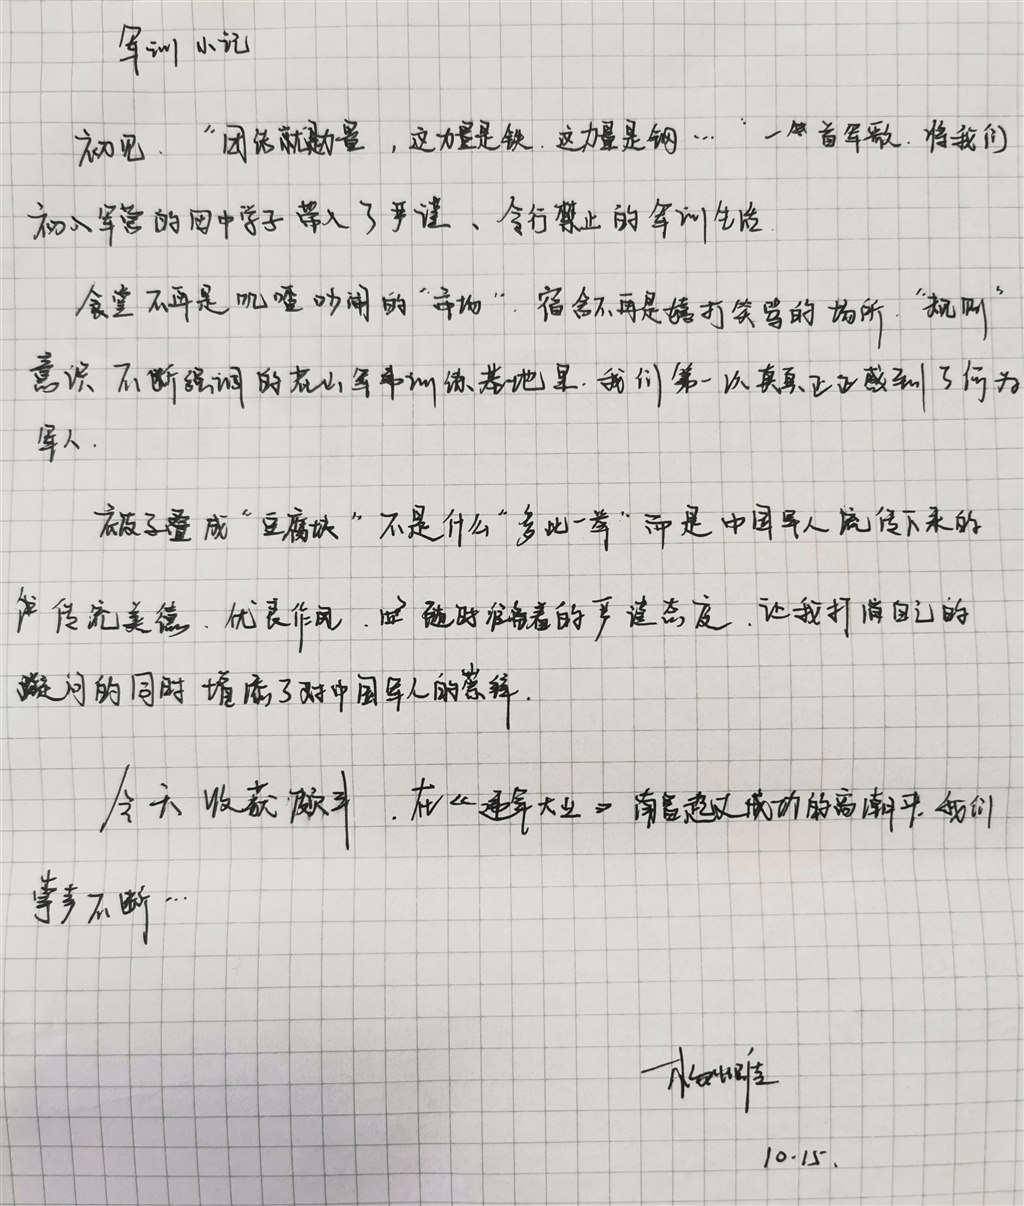 军训小记
初见，“团结就是力量，这力量是铁，这力量是钢…”一首军歌，将我们
初入军营的田中学子带入了严谨、令行禁止的军训生活。
食堂不再是叽喳吵闹的“市场”，宿舍不再是嬉打笑骂的场所，“规则”
意识不断强调的在山军事训练基地里，我们第一次真真正正感到了何为
军人.
被子叠成“豆腐块”不是什么“多此一举”而是中国军人流传下来的
传统美德，优良作风，随时准备着的严谨态度，让我打消自己的
疑问的同时增添了对中国军人的崇拜.
今天收获颇丰，在《建军大业》南昌起义成功的高潮中，我们
掌声不断…
10.15.